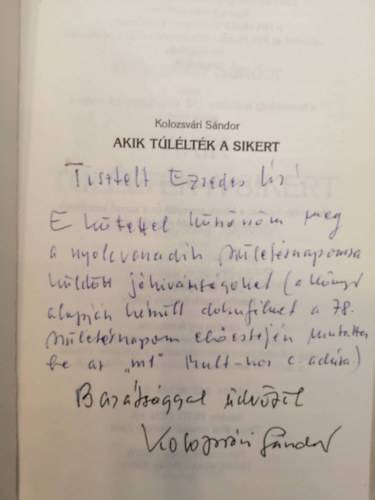 Kolozsvári Sándor
AKIK TÚLÉLTÉK A SIKERT
Tisztelt Ezredes Úr!
E kötettel köszönöm meg
a nyolcvanadik születésnapomra
küldött jókívánságokat (a könyv
alapján készült dokufilmet a 78.
születésnapom előestéjén mutatta
be az "m1" Mult-kor c. adása.)
Barátsággal üdvözöl
Kolozsvári Sándor